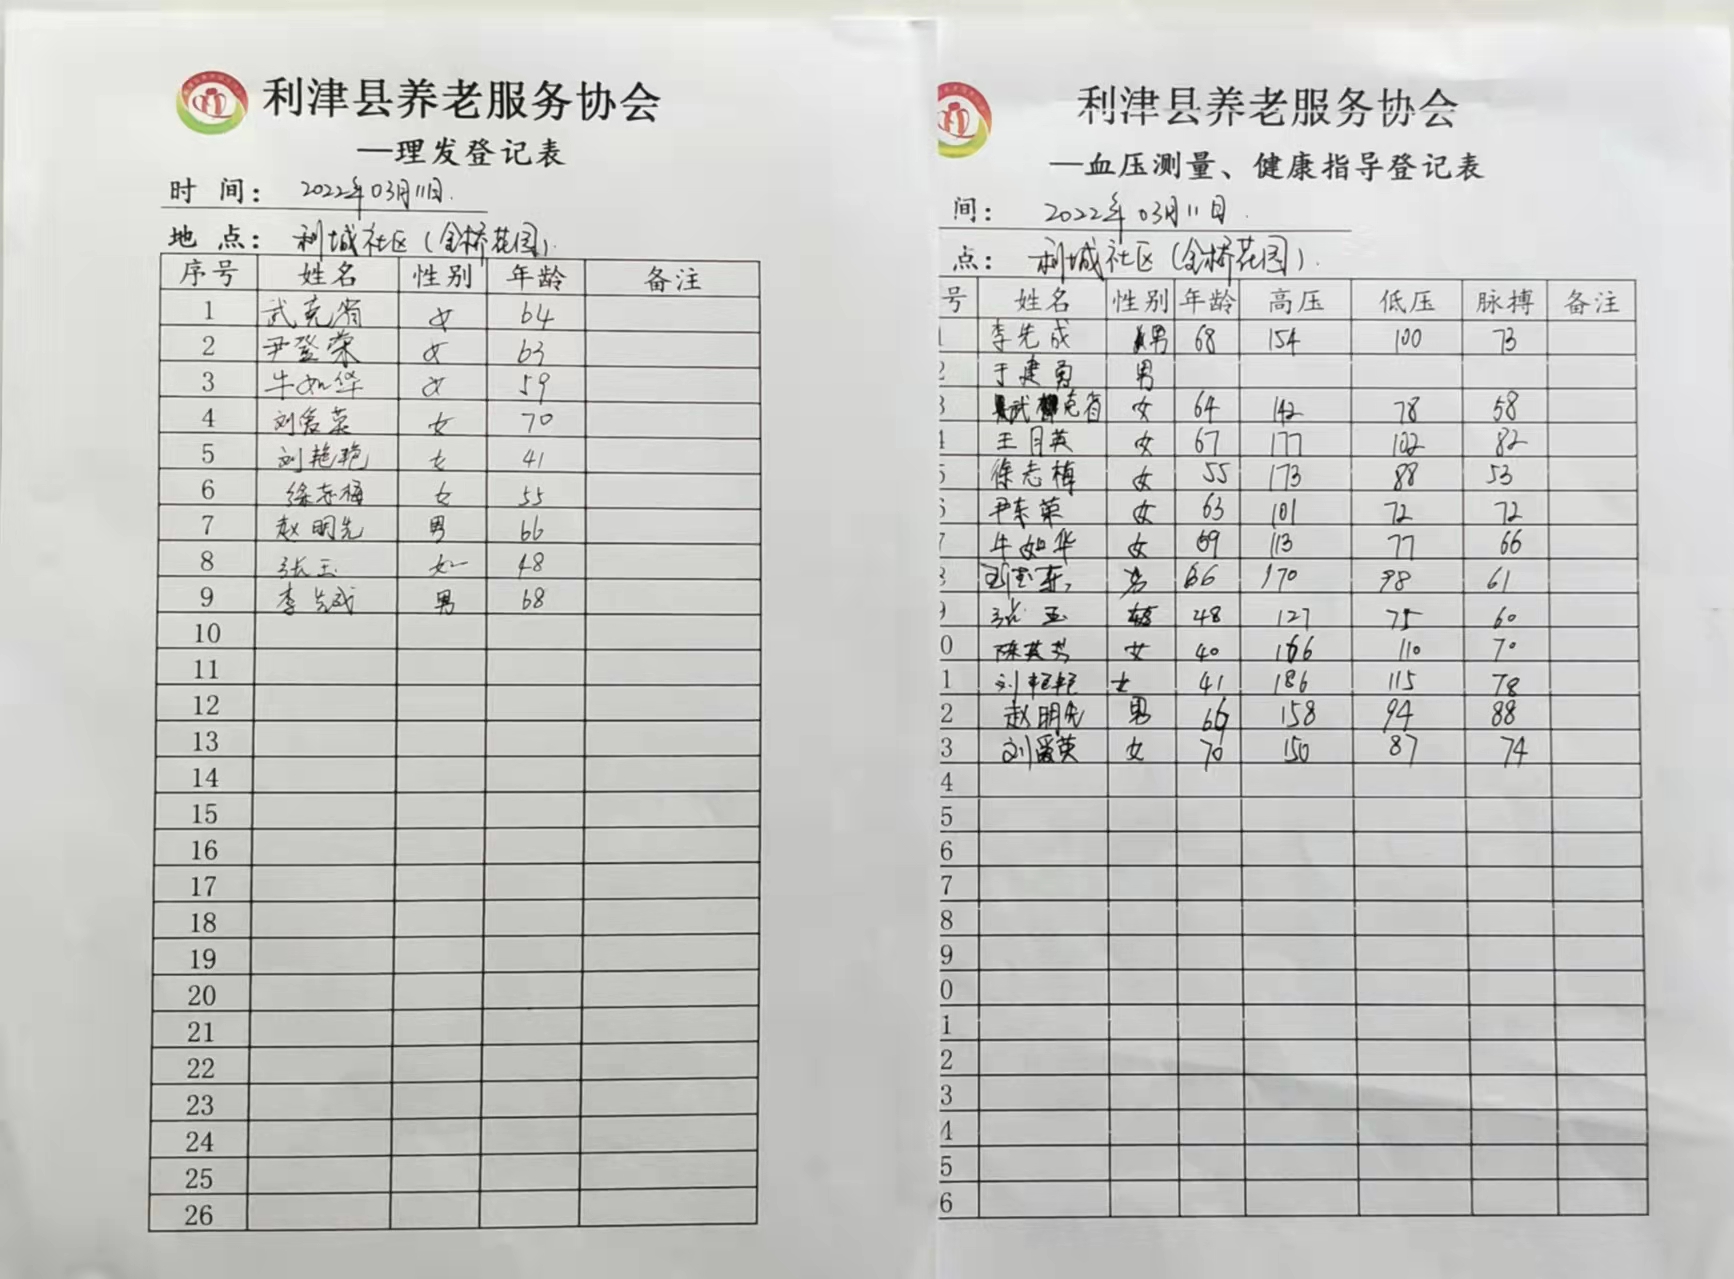 利津县养老服务协会
—理发登记表
时 间： 2022年03月11日.
地 点： 利城社区（金桥花园）.
序号 姓名 性别 年龄 备注
1 武克省 女 64
2 尹登荣 女 63
3 牛如华 女 59
4 刘爱英 女 70
5 刘艳艳 女 41
6 徐志梅 女 55
7 赵明先 男 66
8 张玉 女 48
9 李先成 男 68
10
11
12
13
14
15
16
17
18
19
20
21
22
23
24
25
26
利津县养老服务协会
—血压测量、健康指导登记表
间： 2022年03月11日.
点： 利城社区（金桥花园）.
号 姓名 性别 年龄 高压 低压 脉搏 备注
1 李先成 男 68 154 100 73
2 于建勇 男
3 武克省 女 64 142 78 58
4 王月英 女 67 177 102 82
5 徐志梅 女 55 173 88 53
6 尹东荣 女 63 101 72 72
7 牛如华 女 59 113 77 66
8 66 170 98 61
9 张玉 48 127 75 60
0 陈英芳 女 40 166 110 70
1 刘艳艳 女 41 186 115 78
2 赵明先 男 66 158 94 88
3 刘爱英 女 70 150 87 74
4
5
6
7
8
9
0
1
2
3
4
5
6